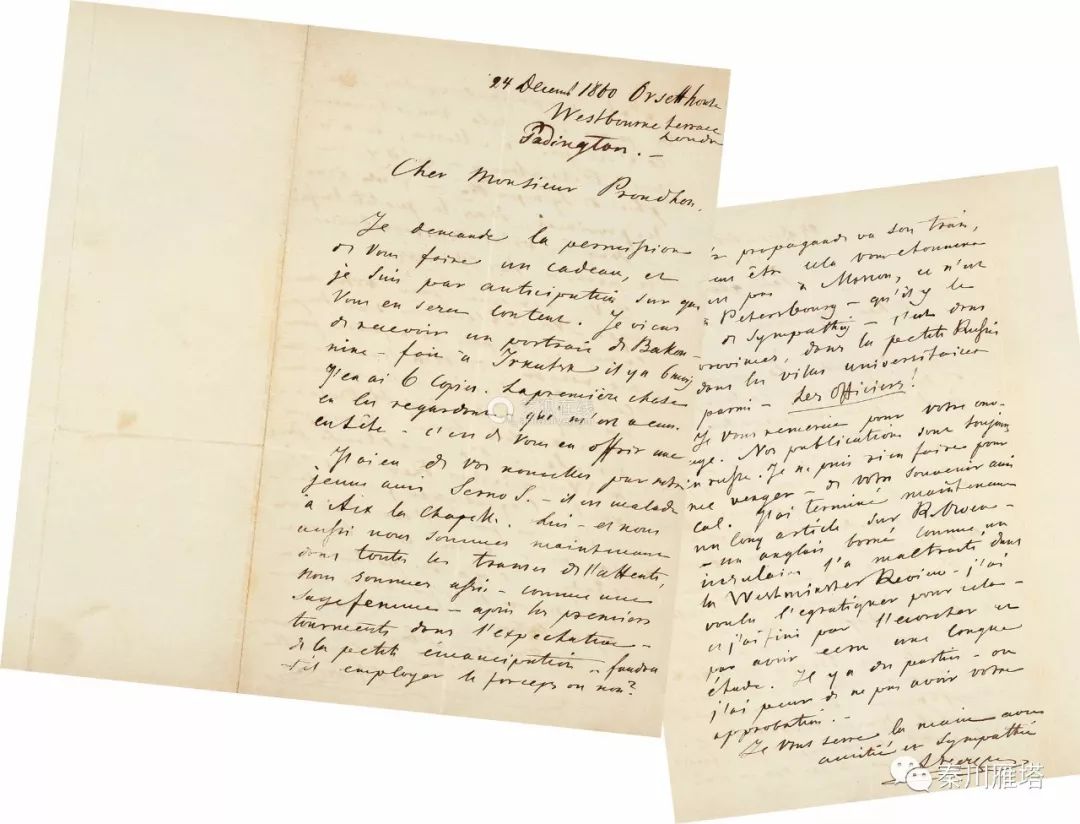 24 Decemb 1860 Orsett house
Westbourne terrace
Londr
Padington. —
Cher Monsieur Proudhon,
Je demande la permission
de vous faire un cadeau, et
je suis par anticipation sur que
vous en serez content. Je viens
de recevoir un portrait de Bakou-
nine — fait à Irkutsk il y a 6 mois
J'en ai 6 copies. La première chose
en les regardant, qui m'est venu
en tête — c'est de vous en offrir une
J'ai eu de vos nouvelles par notre
jeune ami Serno S. — il est malade
à Aix la Chapelle. Lui — et nous
aussi nous sommes maintenant
dans toutes les transes de l'attente.
Nous sommes assis — comme une
sagefemme — après les premiers
tourments dans l'expectation —
de la petite emancipation — faudra
t-il employer le forceps ou non?
propagande va son train,
être cela vous etonnera
pas à Moscou, ce n'est
Petersbourg — qu'il y a le
de sympathie — c'est dans
provinces, dans la petite Russie
dans les villes universitaires
parmi — Les officiers!
Je vous remercie pour votre
Nos publications sont toujours
en russe. Je ne puis rien faire pour
me venger — de votre souvenir ami
cal. J'ai terminé maintenant
un long article sur R. Owen —
un anglais borné comme un
insulaire l'a maltraité dans
la Westminster Review — j'ai
voulu l'egratigner pour cela —
et j'ai fini par l'ecorcher et
par avoir ecrit une longue
étude. Il y a des parties — où
j'ai peur de ne pas avoir votre
approbation. —
Je vous serre la main avec
amitié et sympathie
A Herzen
秦川雁塔